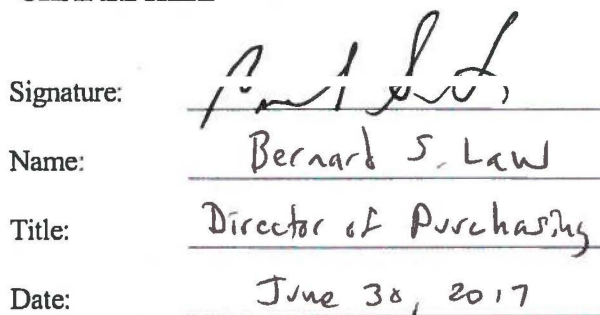 Signature:
Name: Bernard S. Law
Title: Director of Purchasing
Date: June 30, 2017